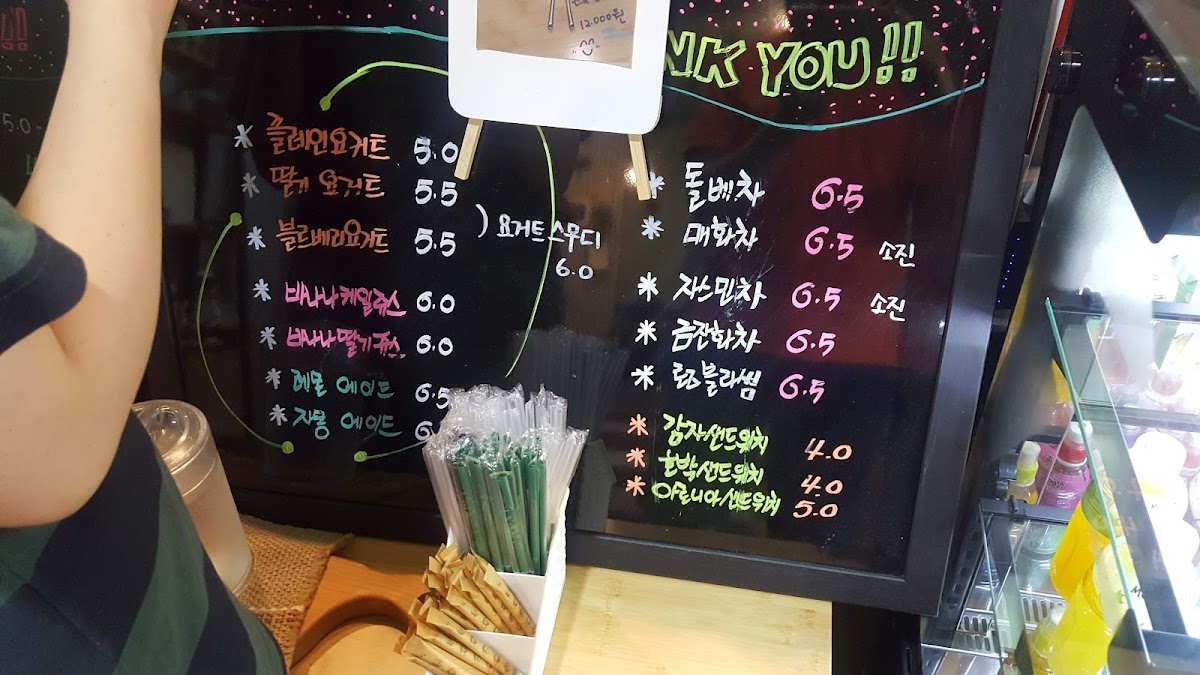 12.000원
NK YOU!!
* 플레인요거트 5.0
* 딸기 요거트 5.5
* 블르베리요거트 5.5
) 요거트스무디
6.0
* 바나나케일쥬스 6.0
* 바나나딸기쥬스 6.0
* 레몬 에이드 6.5
* 자몽 에이드 6.
* 돌배차 6.5
* 매화차 6.5 소진
* 자스민차 6.5 소진
* 금잔화차 6.5
* 로즈블라썸 6.5
* 감자샌드위치 4.0
* 호박샌드위치 4.0
* 이탈리아샌드위치 5.0
5.0